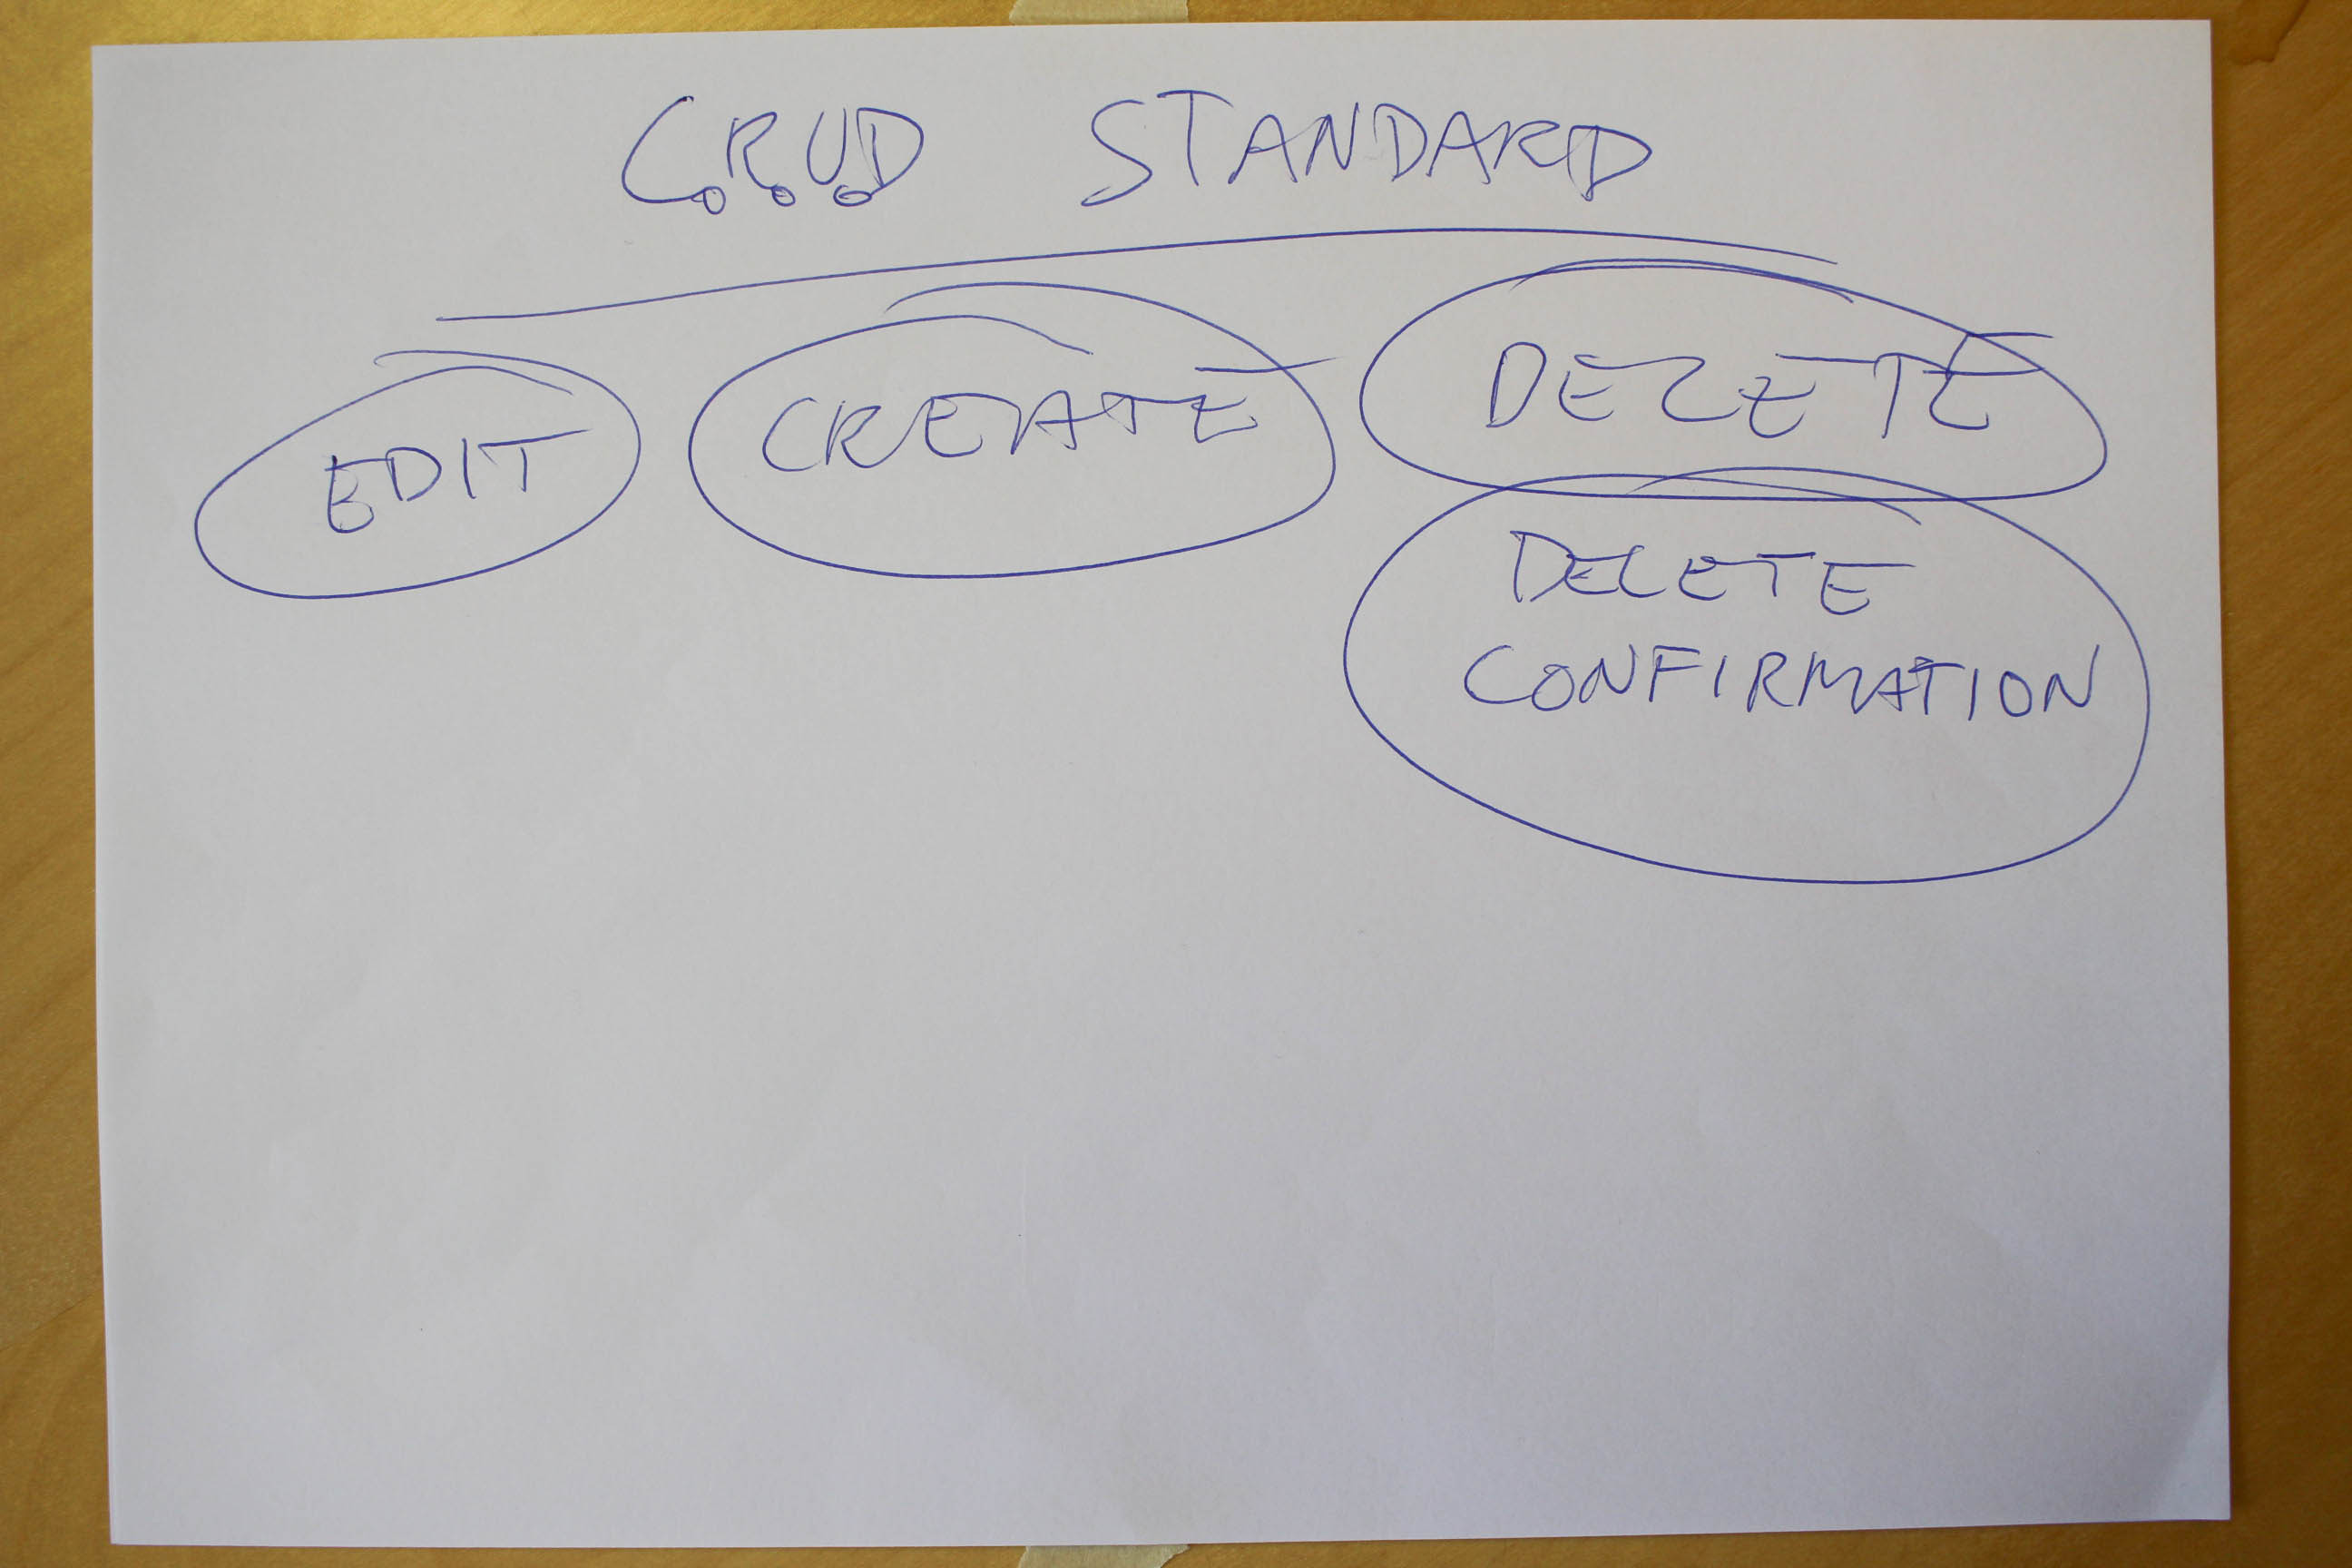 C.R.U.D STANDARD
EDIT CREATE DELETE
DELETE
CONFIRMATION